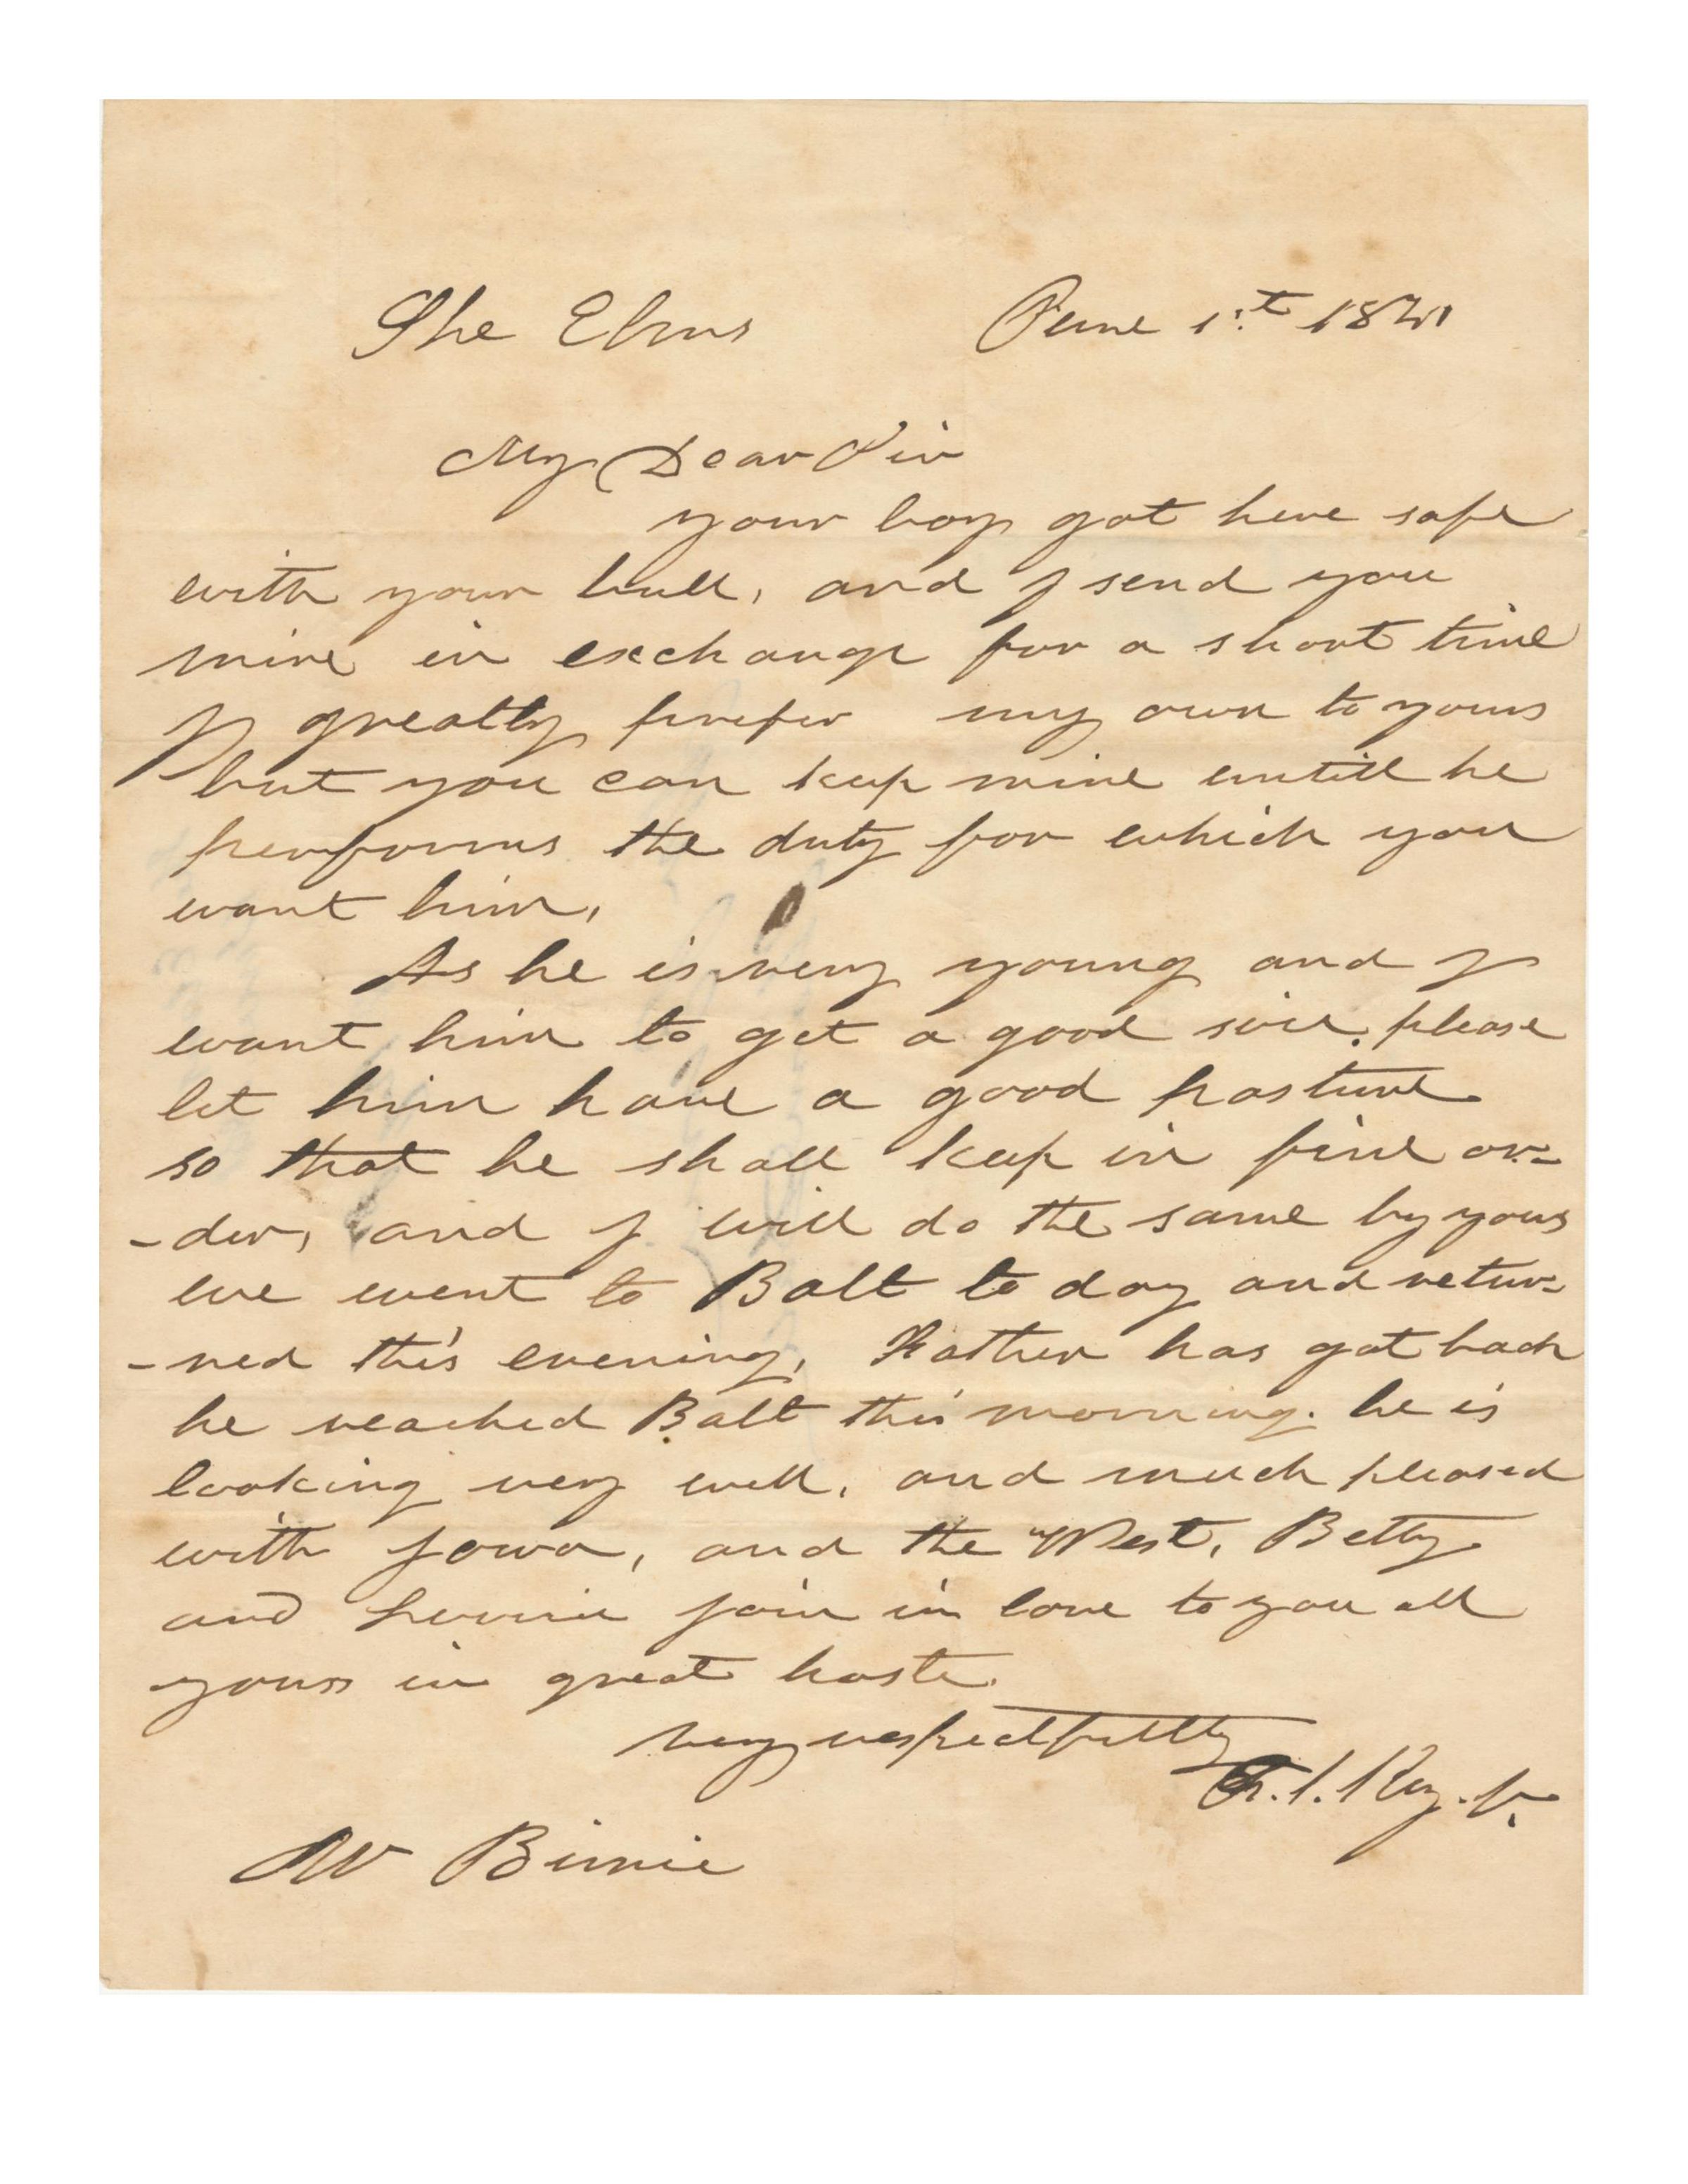 The Elms June 1st 1841
My Dear Sir
your boy got here safe
with your bull, and I send you
mine in exchange for a short time
I greatly prefer my own to yours
but you can keep mine untill he
performs the duty for which you
want him,
As he is very young and I
want him to get a good size. please
let him have a good pasture
so that he shall keep in fine or=
-der, and I will do the same by yours
we went to Balt to day and retur=
-ned this evening, Father has got back
he reached Balt this morning. he is
looking very well, and much pleased
with Iowa, and the West, Betty
and join in love to you all
yours in great haste.
very respectfully
F. S. Key. Jr.
Mr Birnie